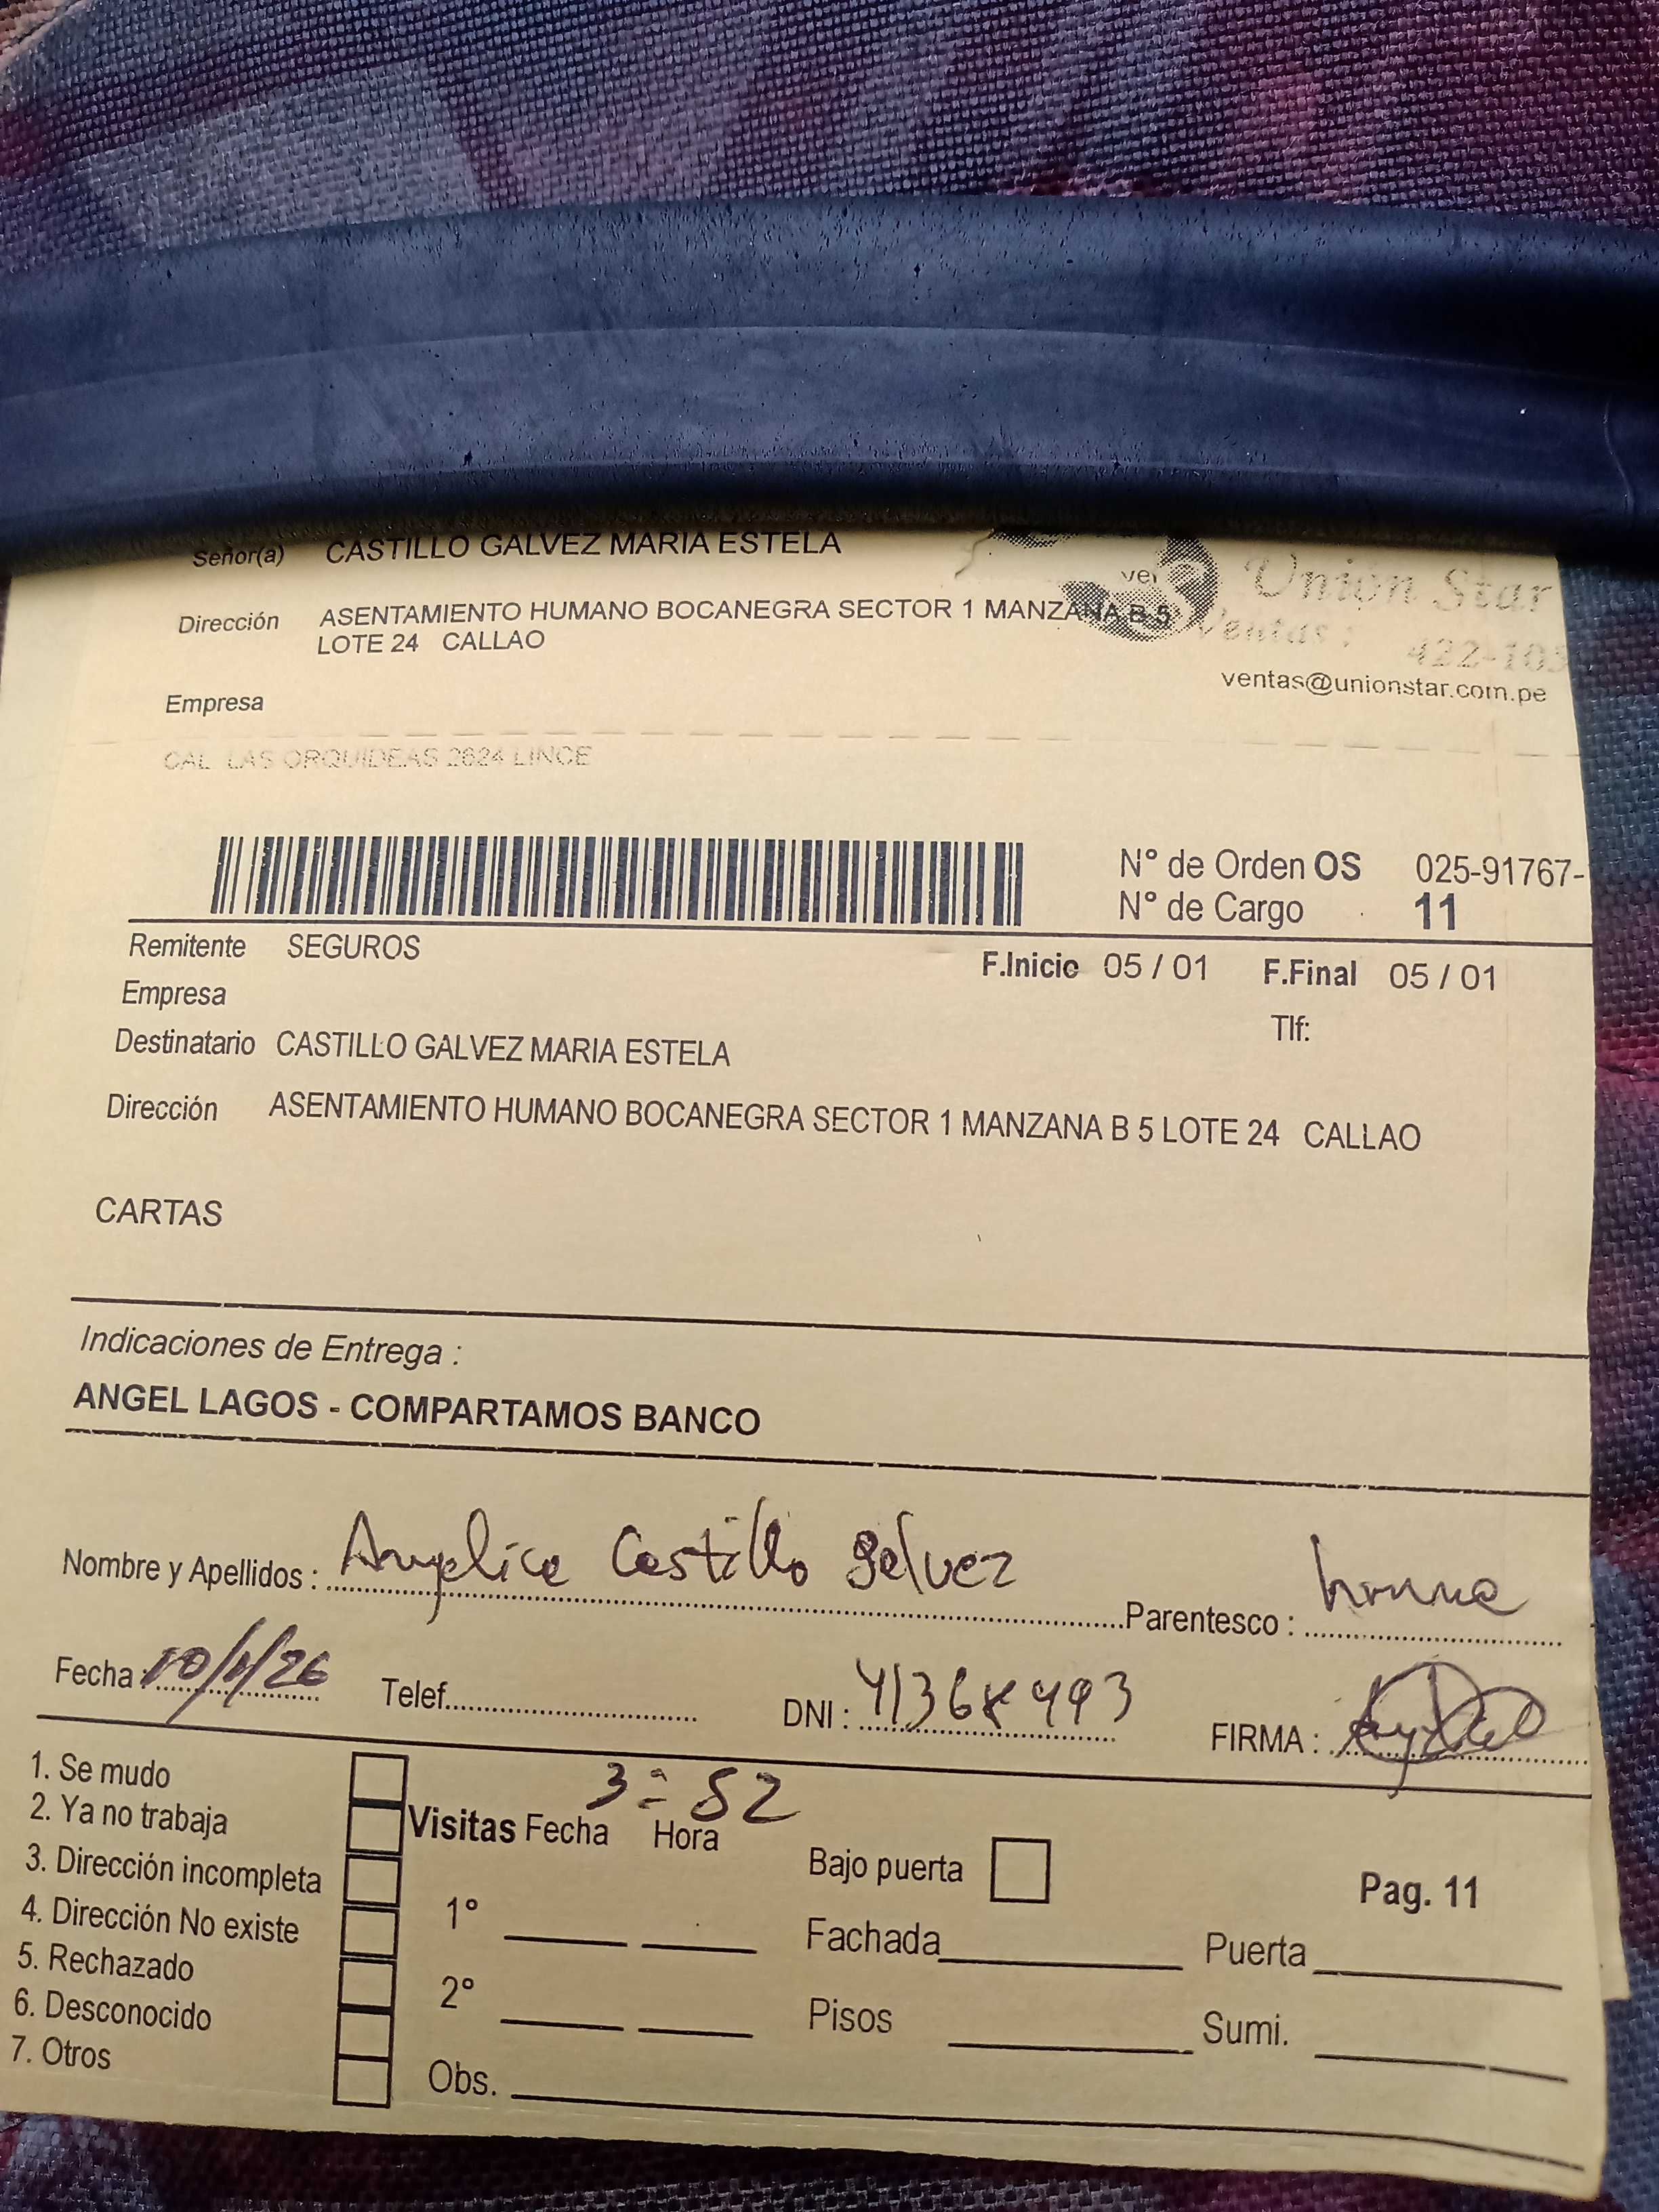 Señor(a) CASTILLO GALVEZ MARIA ESTELA
Dirección ASENTAMIENTO HUMANO BOCANEGRA SECTOR 1 MANZANA B 5
LOTE 24 CALLAO
Unión Star
Ventas: 422-103
ventas@unionstar.com.pe
Empresa
CAL LAS ORQUIDEAS 2624 LINCE
N° de Orden OS 025-91767-
N° de Cargo 11
Remitente SEGUROS
F.Inicio 05 / 01 F.Final 05 / 01
Empresa
Tlf:
Destinatario CASTILLO GALVEZ MARIA ESTELA
Dirección ASENTAMIENTO HUMANO BOCANEGRA SECTOR 1 MANZANA B 5 LOTE 24 CALLAO
CARTAS
Indicaciones de Entrega :
ANGEL LAGOS - COMPARTAMOS BANCO
Nombre y Apellidos : Angelica Castillo Galvez Parentesco :
Fecha 10/1/26 Telef. DNI : FIRMA :
3:52
1. Se mudo
2. Ya no trabaja
3. Dirección incompleta
4. Dirección No existe
5. Rechazado
6. Desconocido
7. Otros
Visitas Fecha Hora
1°
2°
Obs.
Bajo puerta
Pag. 11
Fachada Puerta
Pisos Sumi.